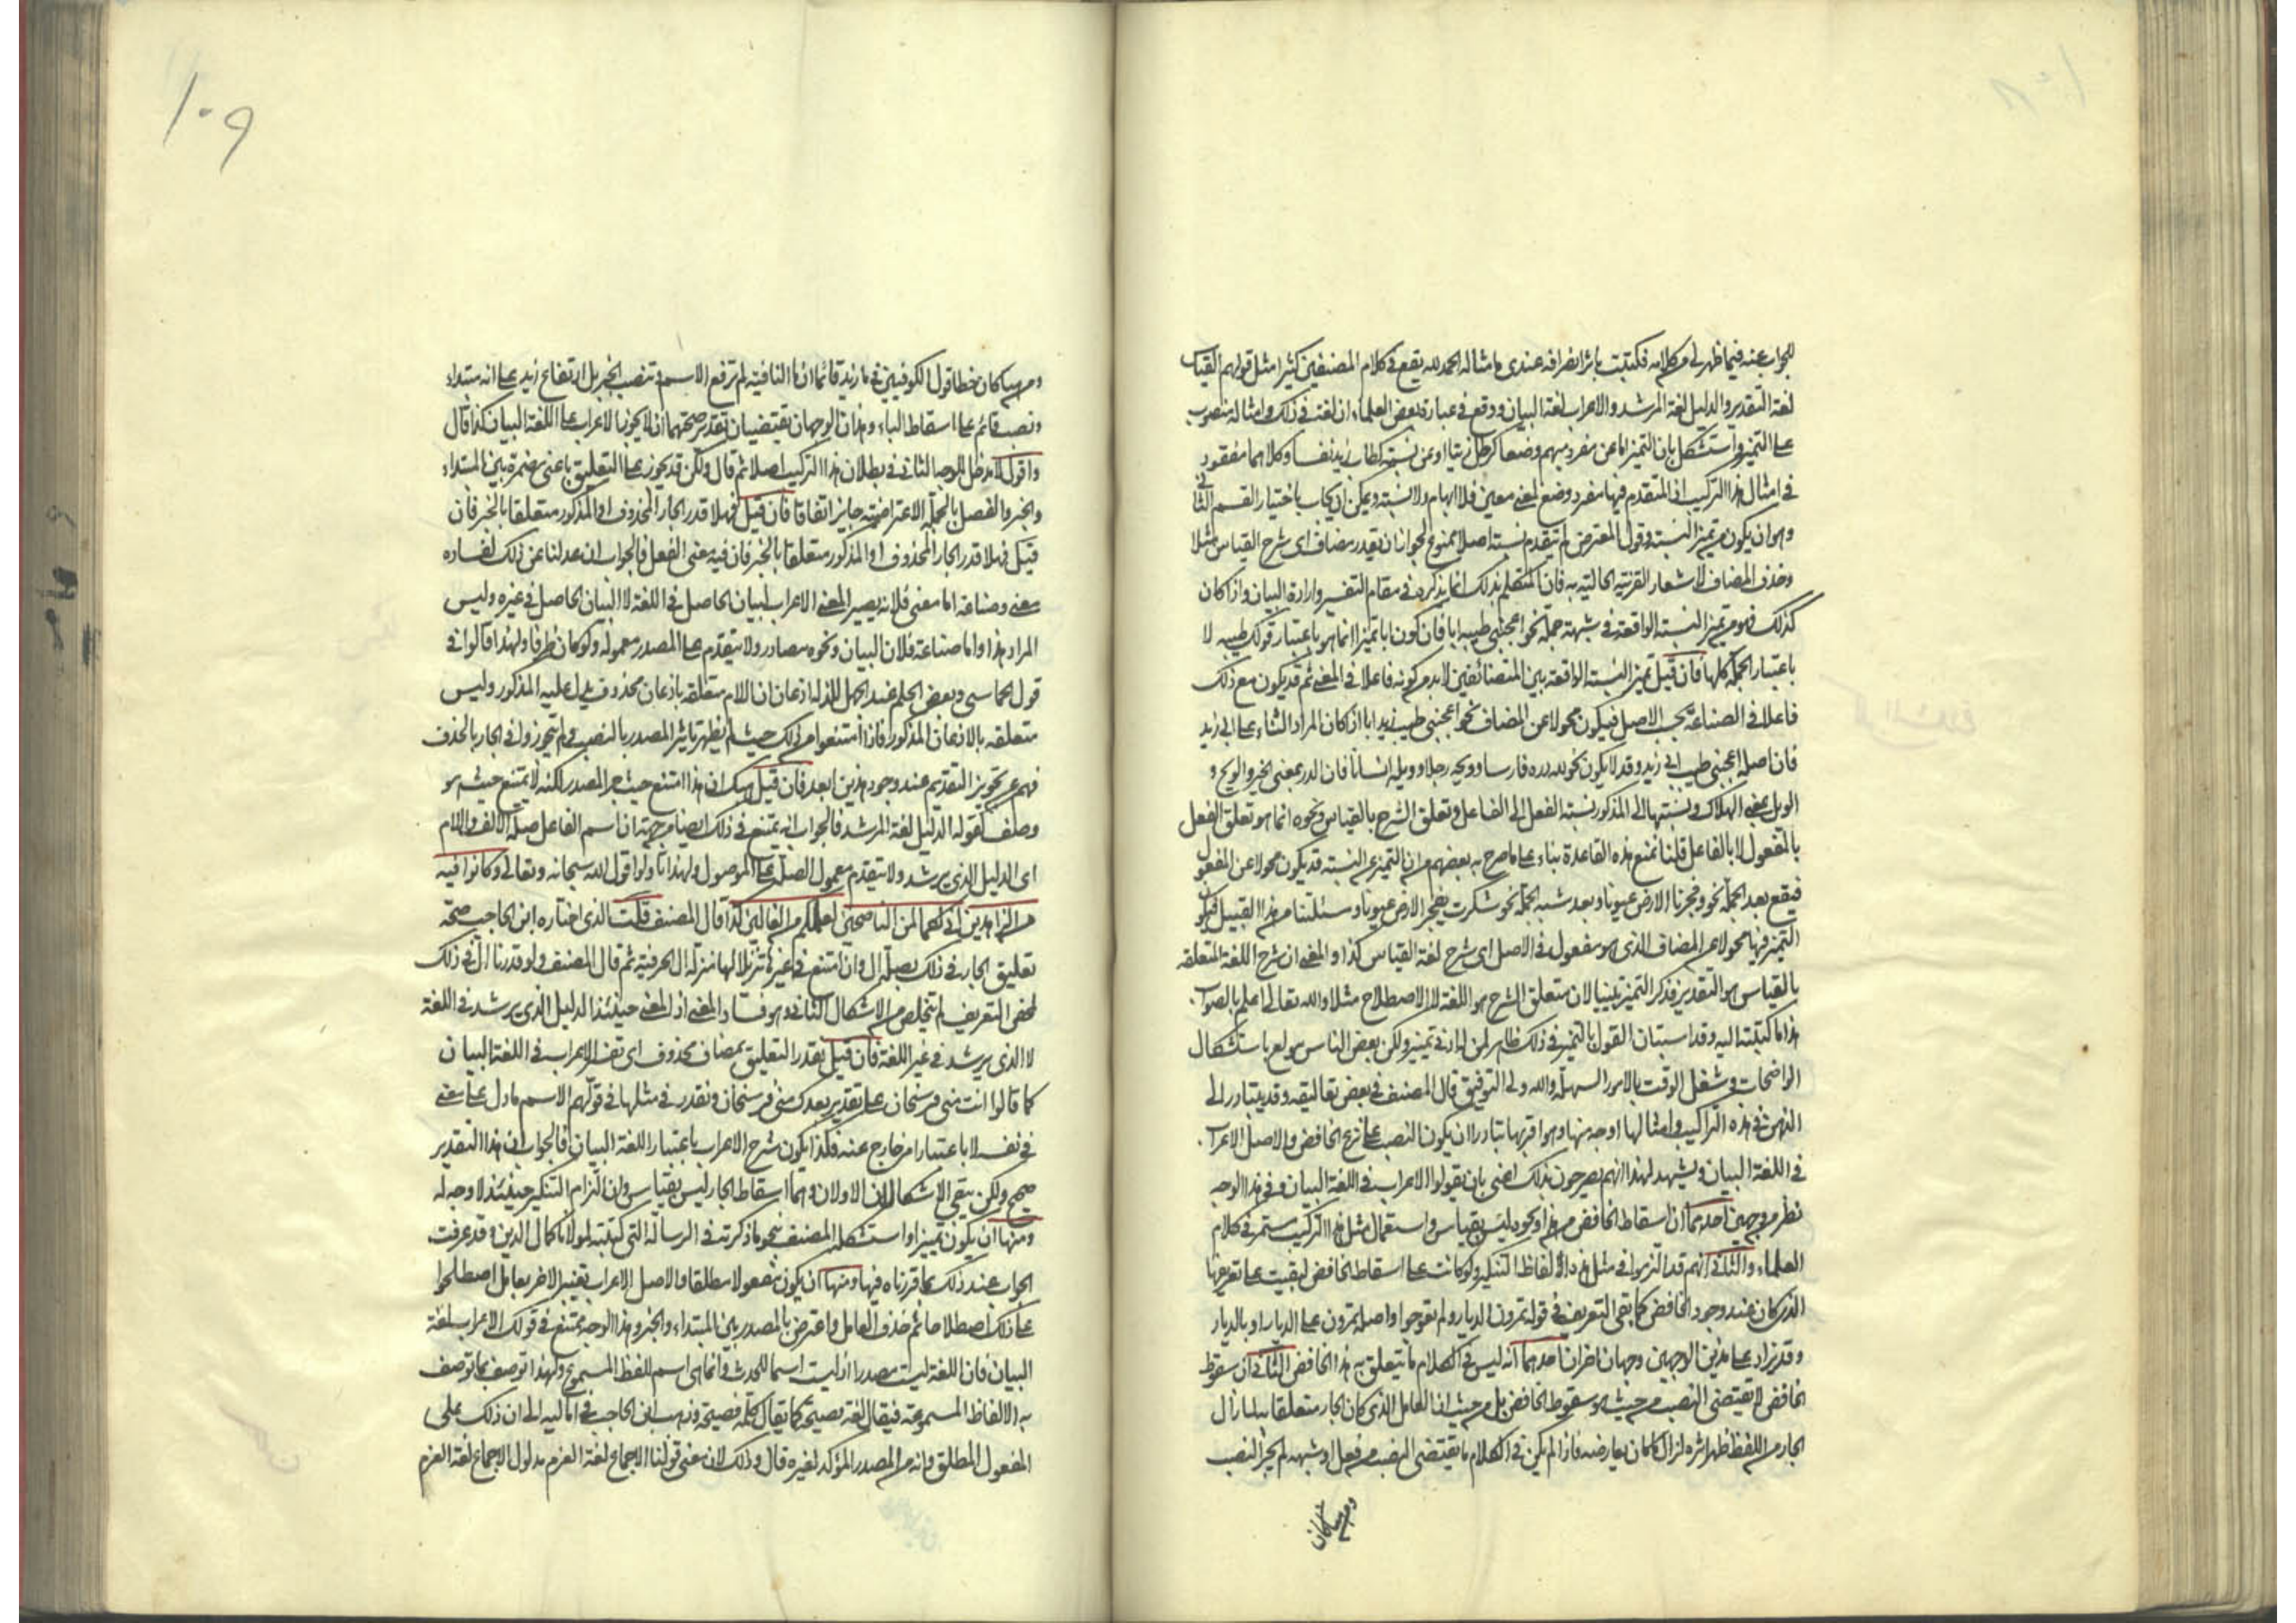 للجواب عنه فيما ظهر لي من كلامه فكتبت باثر انصرافه عندي ما مثاله الحمد لله يقع في كلام المصنفين كثيرا مثل قولهم القياس
لغة التقدير والدليل لغة المرشد والاعراب لغة البيان ووقع في عبارة بعض العلماء ان لغة في ذلك وامثاله منصوب
على التميز واستشكل بان التميز اما عن مفرد مبهم وضعا كرطل زيتا او عن نسبة كطاب زيد نفسا وكلاهما مفقود
في امثال هذا التركيب اذ المتقدم فيها مفرد وضع لمعنى معين فلا ابهام ولا نسبة ويمكن ان يجاب باختيار القسم الثاني
وهو ان يكون من تميز النسبة وقول المعترض لم يتقدم نسبة اصلا ممنوع لجواز ان يقدر مضاف اى شرح القياس مثلا
وحذف المضاف لاشعار القرينة الحالية به فان المتكلم بذلك انما يذكره في مقام التفسير وارادة البيان واذا كان
كذلك فهو من تميز النسبة الواقعة في شبهة جملة نحو اعجبني طيبه ابا فان كون ابا تميزا انما هو باعتبار قولك طيبه لا
باعتبار الجملة كلها فان قيل تميز النسبة الواقعة بين المتضائفين لابد من كونه فاعلا في المعنى ثم قد يكون مع ذلك
فاعلا في الصناعة بحسب الاصل فيكون محولا عن المضاف نحو اعجبني طيب زيد ابا اذا كان المراد الثناء على ابي زيد
فان اصله اعجبني طيب ابي زيد وقد لا يكون نحو لله دره فارسا وويحه رجلا وويله انسانا فان الدر بمعنى الخير والويح و
الويل بمعنى الهلاك ونسبتها الى المذكور نسبة الفعل الى الفاعل وتعلق الشرح بالقياس ونحوه انما هو تعلق الفعل
بالمفعول لا بالفاعل قلنا نمنع هذه القاعدة بناء على ما صرح به بعضهم من ان التميز عن النسبة قد يكون محولا عن المفعول
فيقع بعد الجملة نحو وفجرنا الارض عيونا وبعد شبه الجملة نحو شكرت تفجير الارض عيونا ومسئلتنا من هذا القبيل فيكون
التميز فيها محولا عن المضاف الذي هو مفعول في الاصل اى شرح لغة القياس كذا والمعنى ان شرح اللغة المتعلقة
بالقياس هو التقدير فذكر التميز تبيينا لان متعلق الشرح هو اللغة لا الاصطلاح مثلا والله تعالى اعلم بالصواب
هذا ما كتبته اليه وقد استبان القول بالتميز في ذلك ظاهر لمن له ادنى تمييز ولكن بعض الناس مولع باستشكال
الواضحات وشغل الوقت بالامور السهلة والله ولي التوفيق قال المصنف في بعض تعاليقه وقد يتبادر الى
الذهن في هذه التراكيب وامثالها اوجه منها وهو اقربها تبادرا ان يكون النصب على نزع الخافض والاصل الاعراب
في اللغة البيان ويشهد لهذا انهم يصرحون بذلك اعنى بان يقولوا الاعراب في اللغة البيان وفي هذا الوجه
نظر من وجهين احدهما ان اسقاط الخافض من هذا ونحوه ليس بقياس واستعمال مثل هذا التركيب مستمر في كلام
العلماء والثاني انهم قد التزموا في مثل هذه الالفاظ التنكير ولو كانت على اسقاط الخافض لبقيت على تعريفها
الذي كان عند وجود الخافض كما بقي التعريف في قوله تمرون الديار ولم تعوجوا واصله تمرون على الديار او بالديار
وقد يزاد على هذين الوجهين وجهان اخران احدهما انه ليس في الكلام ما يتعلق به هذا الخافض الثاني ان سقوط
الخافض لا يقتضي النصب من حيث هو سقوط الخافض بل من حيث ان العامل الذي كان الجار متعلقا به لما زال
الجار من اللفظ ظهر اثره لزوال ما كان يعارضه فاذا لم يكن في الكلام ما يقتضي النصب من فعل او شبهه لم يجز النصب
ومن هنا كان
١٠٩
ومن هنا كان خطأ قول الكوفيين في ما زيد قائما ان ما النافية لم ترفع الاسم وتنصب الخبر بل ارتفاع زيد على انه مبتداء
ونصب قائم على اسقاط الباء وهذان الوجهان يقتضيان بتقدير صحتهما ان لا يجوز الاعراب على اللغة البيان كذا قال
واقول لا مدخل للوجه الثاني في بطلان هذا التركيب اصلا ثم قال ولكن قد يجوز على التعليق باعنى مضمرة بين المبتداء
والخبر والفصل بالجملة الاعتراضية جايز اتفاقا فان قيل فهلا قدر الجار المحذوف او المذكور متعلقا بالخبر فان
قيل فهلا قدر الجار المحذوف او المذكور متعلقا بالخبر فان فيه معنى الفعل فالجواب ان عدلنا عن ذلك لفساده
معنى وصناعة اما معنى فلانه يصير المعنى الاعراب البيان الحاصل في اللغة لا البيان الحاصل في غيره وليس
المراد هذا واما صناعة فلان البيان ونحوه مصادر ولا يتقدم على المصدر معموله ولو كان ظرفا ولهذا قالوا في
قول الحماسي وبعض الحلم عند الجهل للذلة اذعان ان اللام متعلقة باذعان محذوف يدل عليه المذكور وليس
متعلقة بالاذعان المذكور فاذا امتنعوا من ذلك حيث لم يظهر تاثير المصدر بالنصب ولم يتجوزوا في الجار بالحذف
فهم عن تجويز التقديم عند وجود هذين ابعد فان قيل هب ان هذا امتنع حيث جر المصدر لكنه لا يمتنع حيث هو
وصف كقوله الدليل لغة المرشد فالجواب انه يمتنع في ذلك ايضا من جهة ان اسم الفاعل صلة الالف واللام
اى الدليل الذي يرشد ولا يتقدم معمول الصلة على الموصول ولهذا تاولوا قول الله سبحانه وتعالى وكانوا فيه
من الزاهدين اني لكما لمن الناصحين اني لعملكم من القالين كذا قال المصنف قلت الذي اختاره ابن الحاجب صحة
تعليق الجار في ذلك بصلة ال وان امتنع في غيرها تنزيلا لها منزلة ال الحرفية ثم قال المصنف ولو قدرنا ال في ذلك
لمحض التعريف لم نتخلص من الاشكال الثاني وهو فساد المعنى اذ المعنى حينئذ الدليل الذي يرشد في اللغة
لا الذي يرشد في غير اللغة فان قيل يقدر التعليق بمضاف محذوف اى تفسير الاعراب في اللغة البيان
كما قالوا انت مني فرسخان على تقدير بعدك مني فرسخان ونقدر في مثلها في قولهم الاسم ما دل على معنى
في نفسه لا باعتبار امر خارج عنه فكذا يكون شرح الاعراب باعتبار اللغة البيان فالجواب ان هذا التقدير
صحيح ولكن يبقى الاشكالان الاولان وهما اسقاط الجار ليس بقياس وان التزام التنكير حينئذ لا وجه له
ومنها ان يكون تمييزا واستشكله المصنف بنحو ما ذكرته في الرسالة التي كتبتها لمولانا كمال الدين وقد عرفت
الجواب عند ذلك بما قررناه فيها ومنها ان يكون مفعولا مطلقا والاصل الاعراب تغيير الاخر بعامل اصطلحوا
على ذلك اصطلاحا ثم حذف العامل واعترض بالمصدر بين المبتداء والخبر وهذا الوجه يمتنع في قولك الاعراب لغة
البيان فان اللغة ليست مصدرا اذ ليست اسما للحدث وانما هي اسم للفظ المسموع ولهذا توصف بما توصف
به الالفاظ المسموعة فيقال لغة فصيحة كما يقال كلمة فصيحة وذهب ابن الحاجب في اماليه الى ان ذلك على
المفعول المطلق وانه من المصدر المؤكد لغيره قال وذلك لان معنى قولنا الاجماع لغة العزم مدلول الاجماع لغة العزم